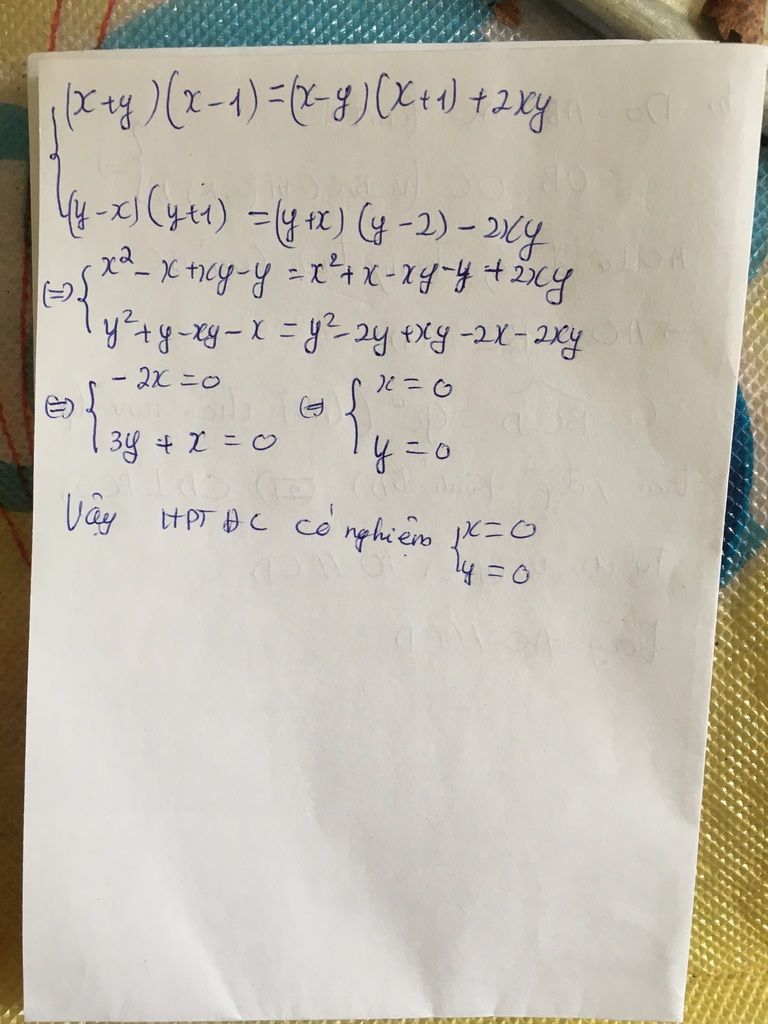 (x+y)(x-1)=(x-y)(x+1)+2xy
(y-x)(y+1)=(y+x)(y-2)-2xy
(=) x²-x+xy-y=x²+x-xy-y+2xy
y²+y-xy-x=y²-2y+xy-2x-2xy
(=) -2x=0 (=) x=0
3y+x=0 y=0
Vậy HPT ĐC có nghiệm x=0
y=0